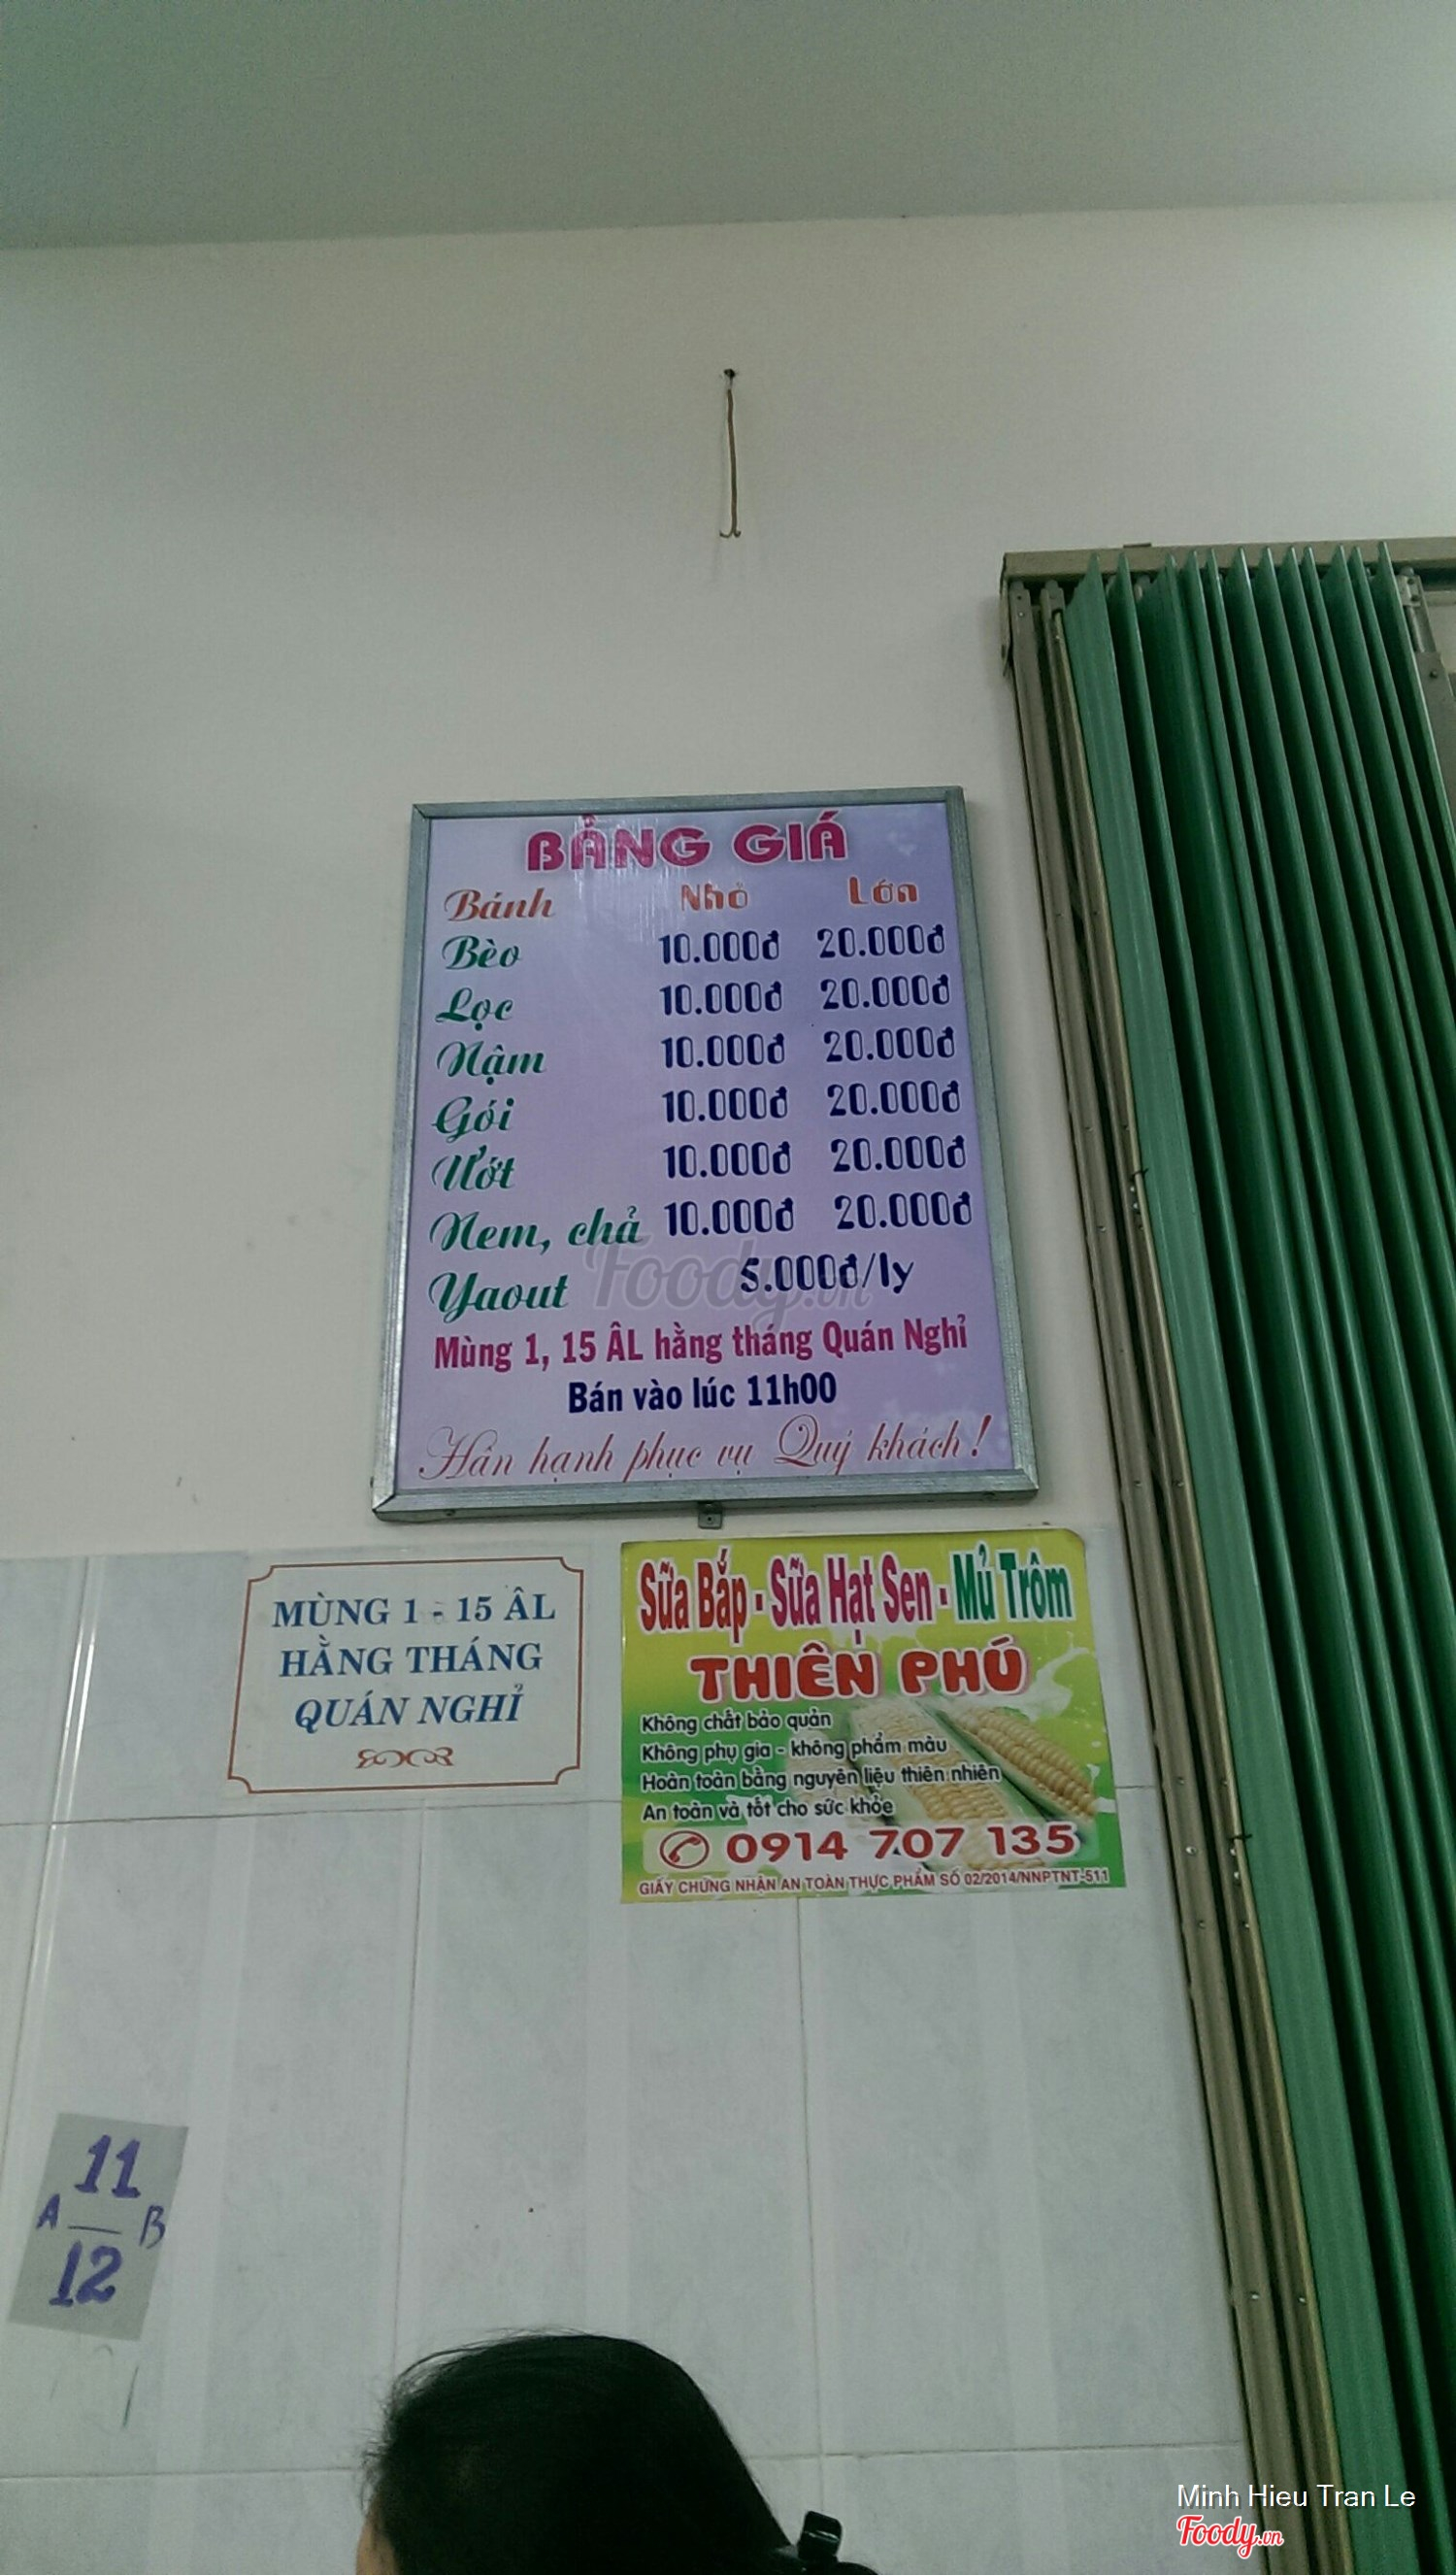 BẢNG GIÁ
Bánh Nhỏ Lớn
Bèo 10.000đ 20.000đ
Lọc 10.000đ 20.000đ
Nậm 10.000đ 20.000đ
Gói 10.000đ 20.000đ
Ướt 10.000đ 20.000đ
Nem, chả 10.000đ 20.000đ
Yaout 5.000đ/ly
Foody.vn
Mùng 1, 15 ÂL hằng tháng Quán Nghỉ
Bán vào lúc 11h00
Hân hạnh phục vụ Quý khách!
MÙNG 1 - 15 ÂL
HẰNG THÁNG
QUÁN NGHỈ
Sữa Bắp - Sữa Hạt Sen - Mủ Trôm
THIÊN PHÚ
Không chất bảo quản
Không phụ gia - không phẩm màu
Hoàn toàn bằng nguyên liệu thiên nhiên
An toàn và tốt cho sức khỏe
0914 707 135
GIẤY CHỨNG NHẬN AN TOÀN THỰC PHẨM SỐ 02/2014/NNPTNT-511
11
A B
12
Minh Hieu Tran Le
Foody.vn